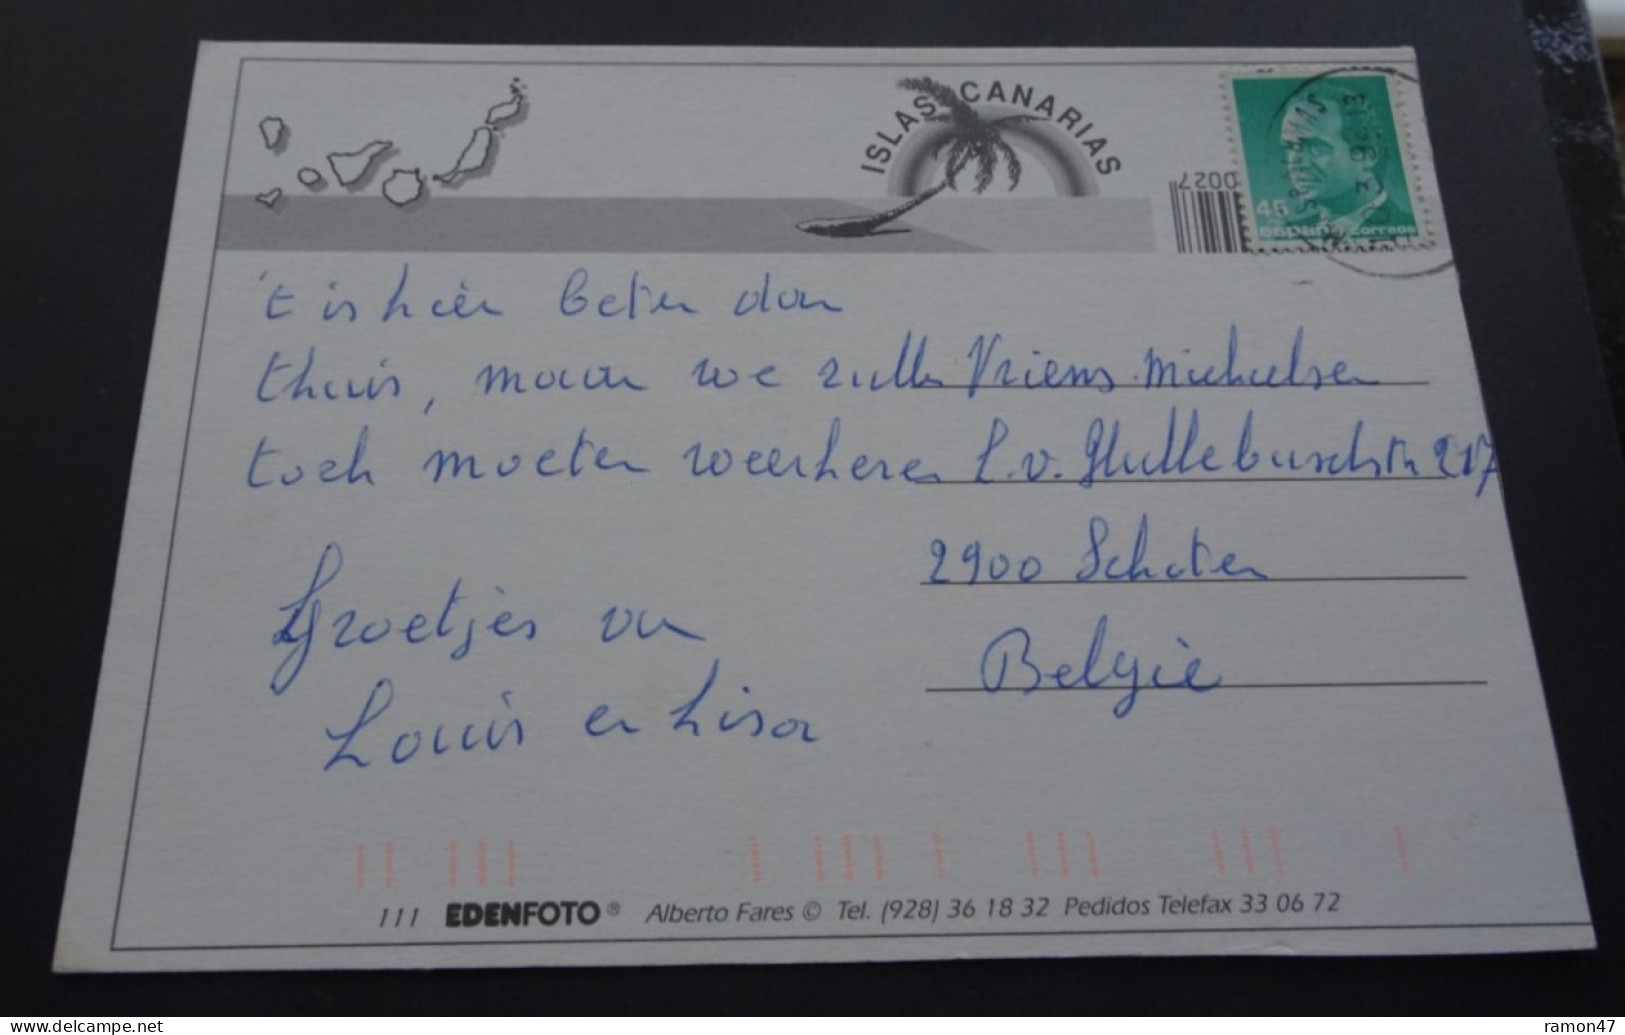 ISLAS CANARIAS
0027
45
españa correos
't is hier beter dan
thuis, maar we zullen
toch moeten weerkeren
Groetjes van
Louis en Lisa
Vriens-Michielsen
2900 Schoten
België
111 EDENFOTO® Alberto Fares © Tel. (928) 36 18 32 Pedidos Telefax 33 06 72
ramon47